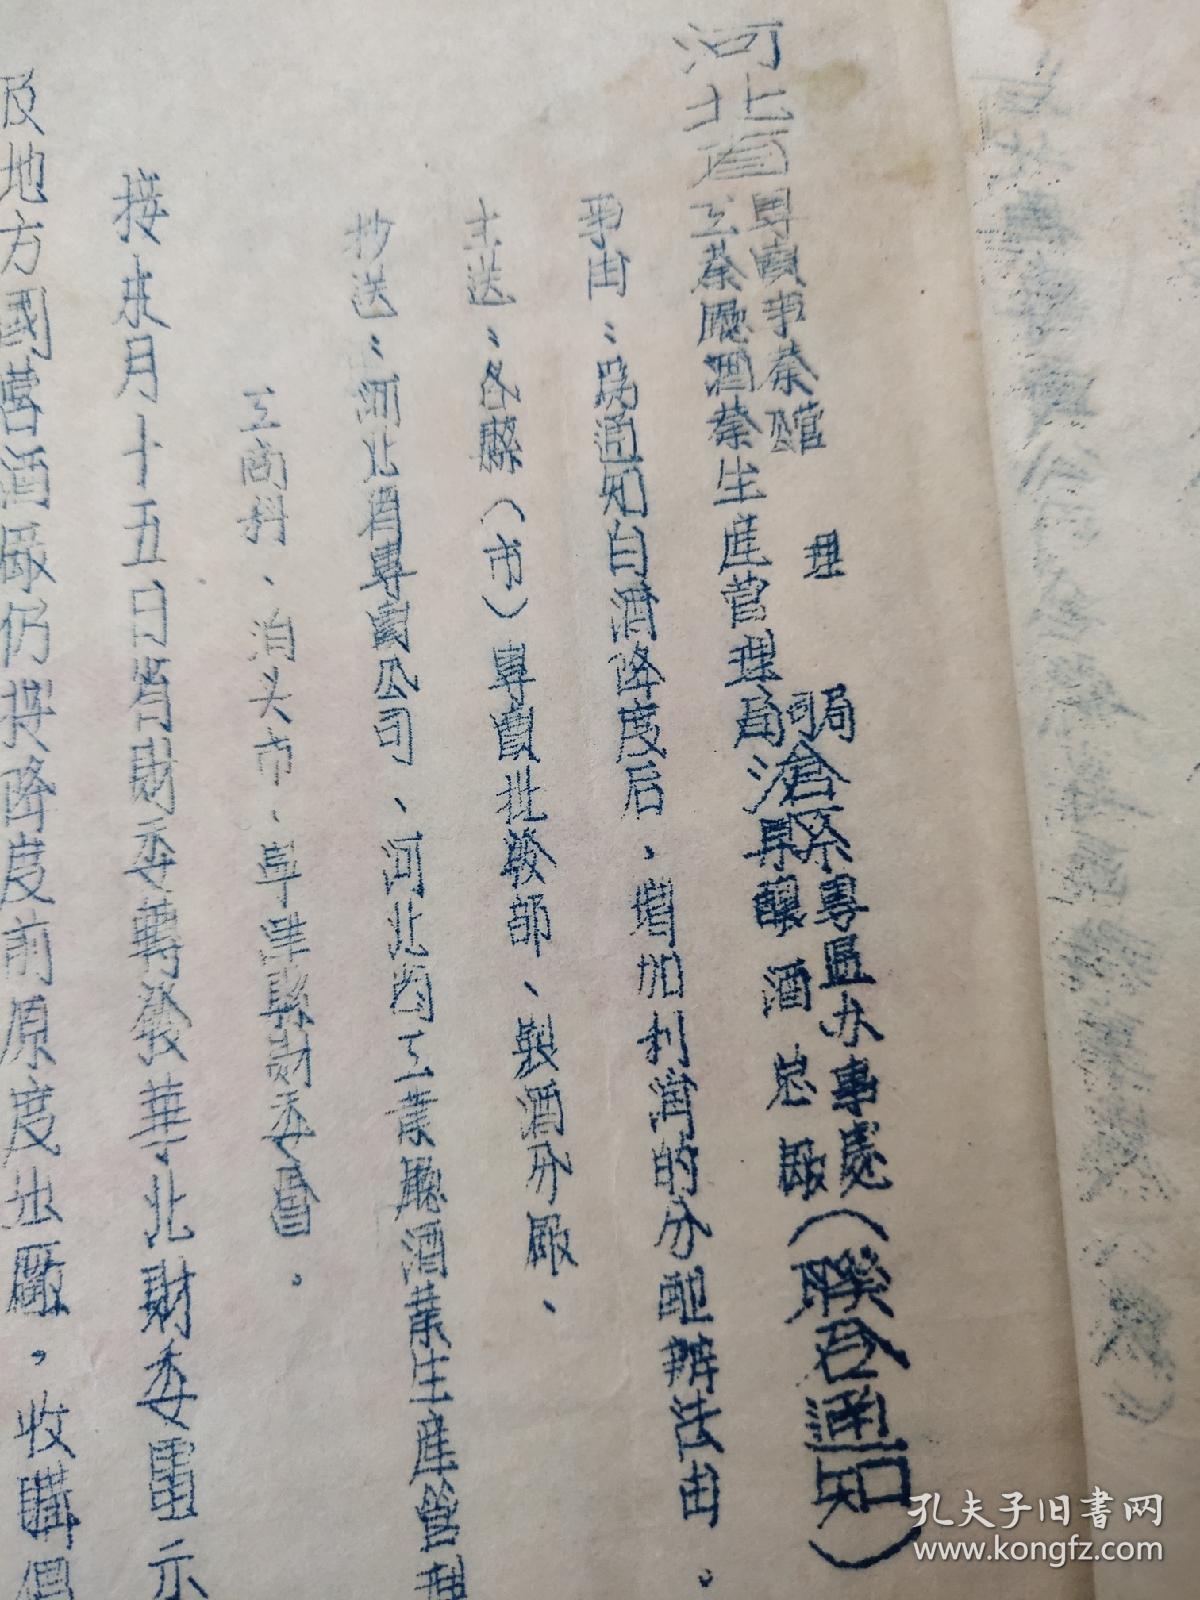 河北省
專賣事業管理局滄縣專區办事處
工業廳酒業生產管理局滄縣釀酒总廠
（聯合通知）
事由：為通知白酒降度后、增加利潤的分配辨法由。
主送：各縣（市）專賣批發部、製酒分厰、
抄送：河北省專賣公司、河北省工業廳酒業生產管理
工商科、泊头市、寧津縣財委會。
接本月十五日省財委轉發華北財委電示
及地方國营酒廠仍按降度前原度出廠，收購價
孔夫子旧书网
www.kongfz.com